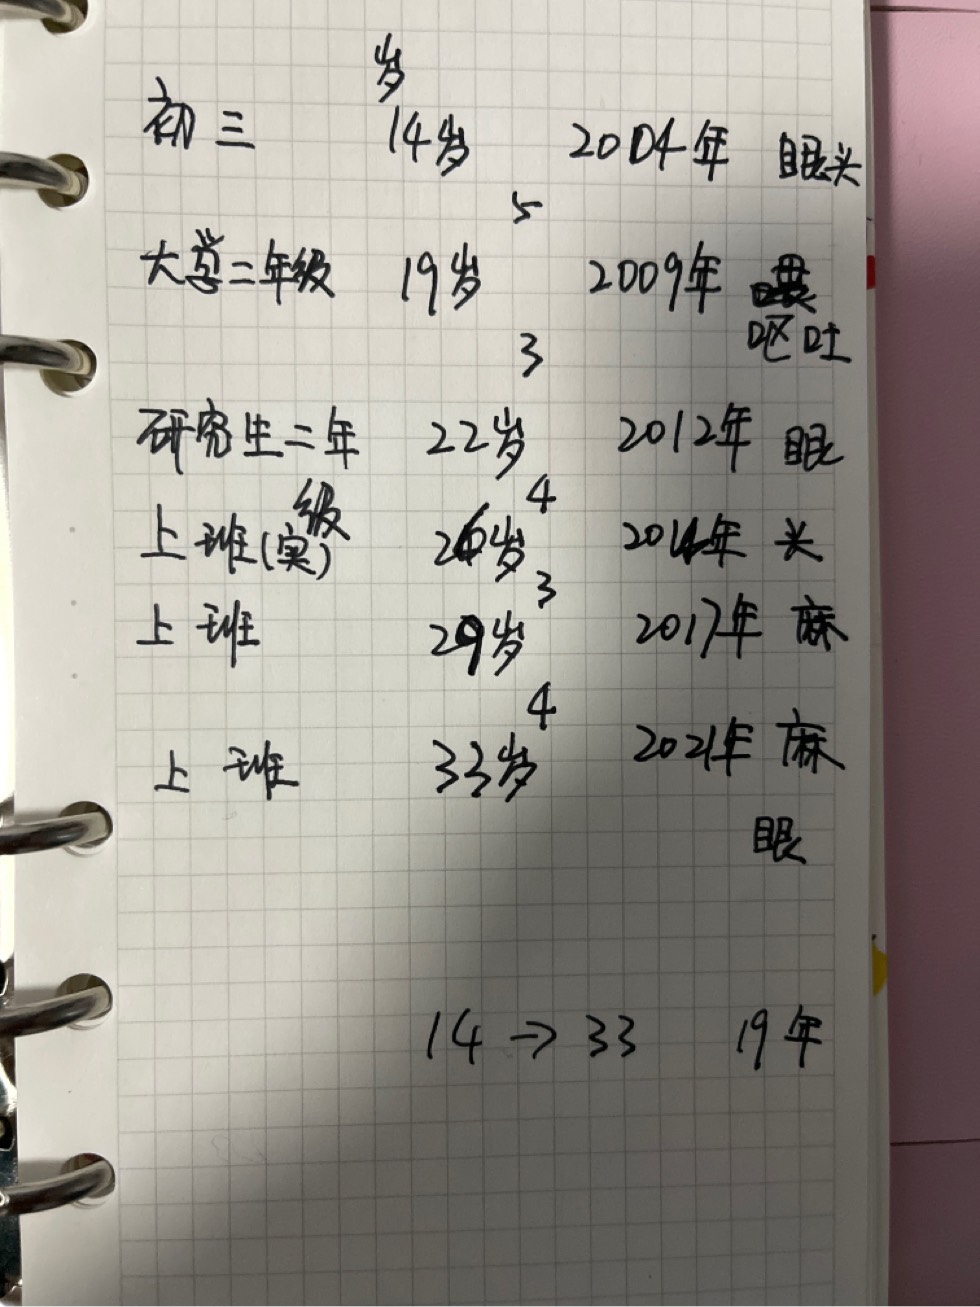 岁
初三 14岁 2004年 眼头
5
大学二年级 19岁 2009年
呕吐
3
研究生二年 22岁 2012年 眼
级 4
上班(实) 26岁 2014年 头
3
上班 29岁 2017年 麻
4
上班 33岁 2021年 麻
眼
14→33 19年